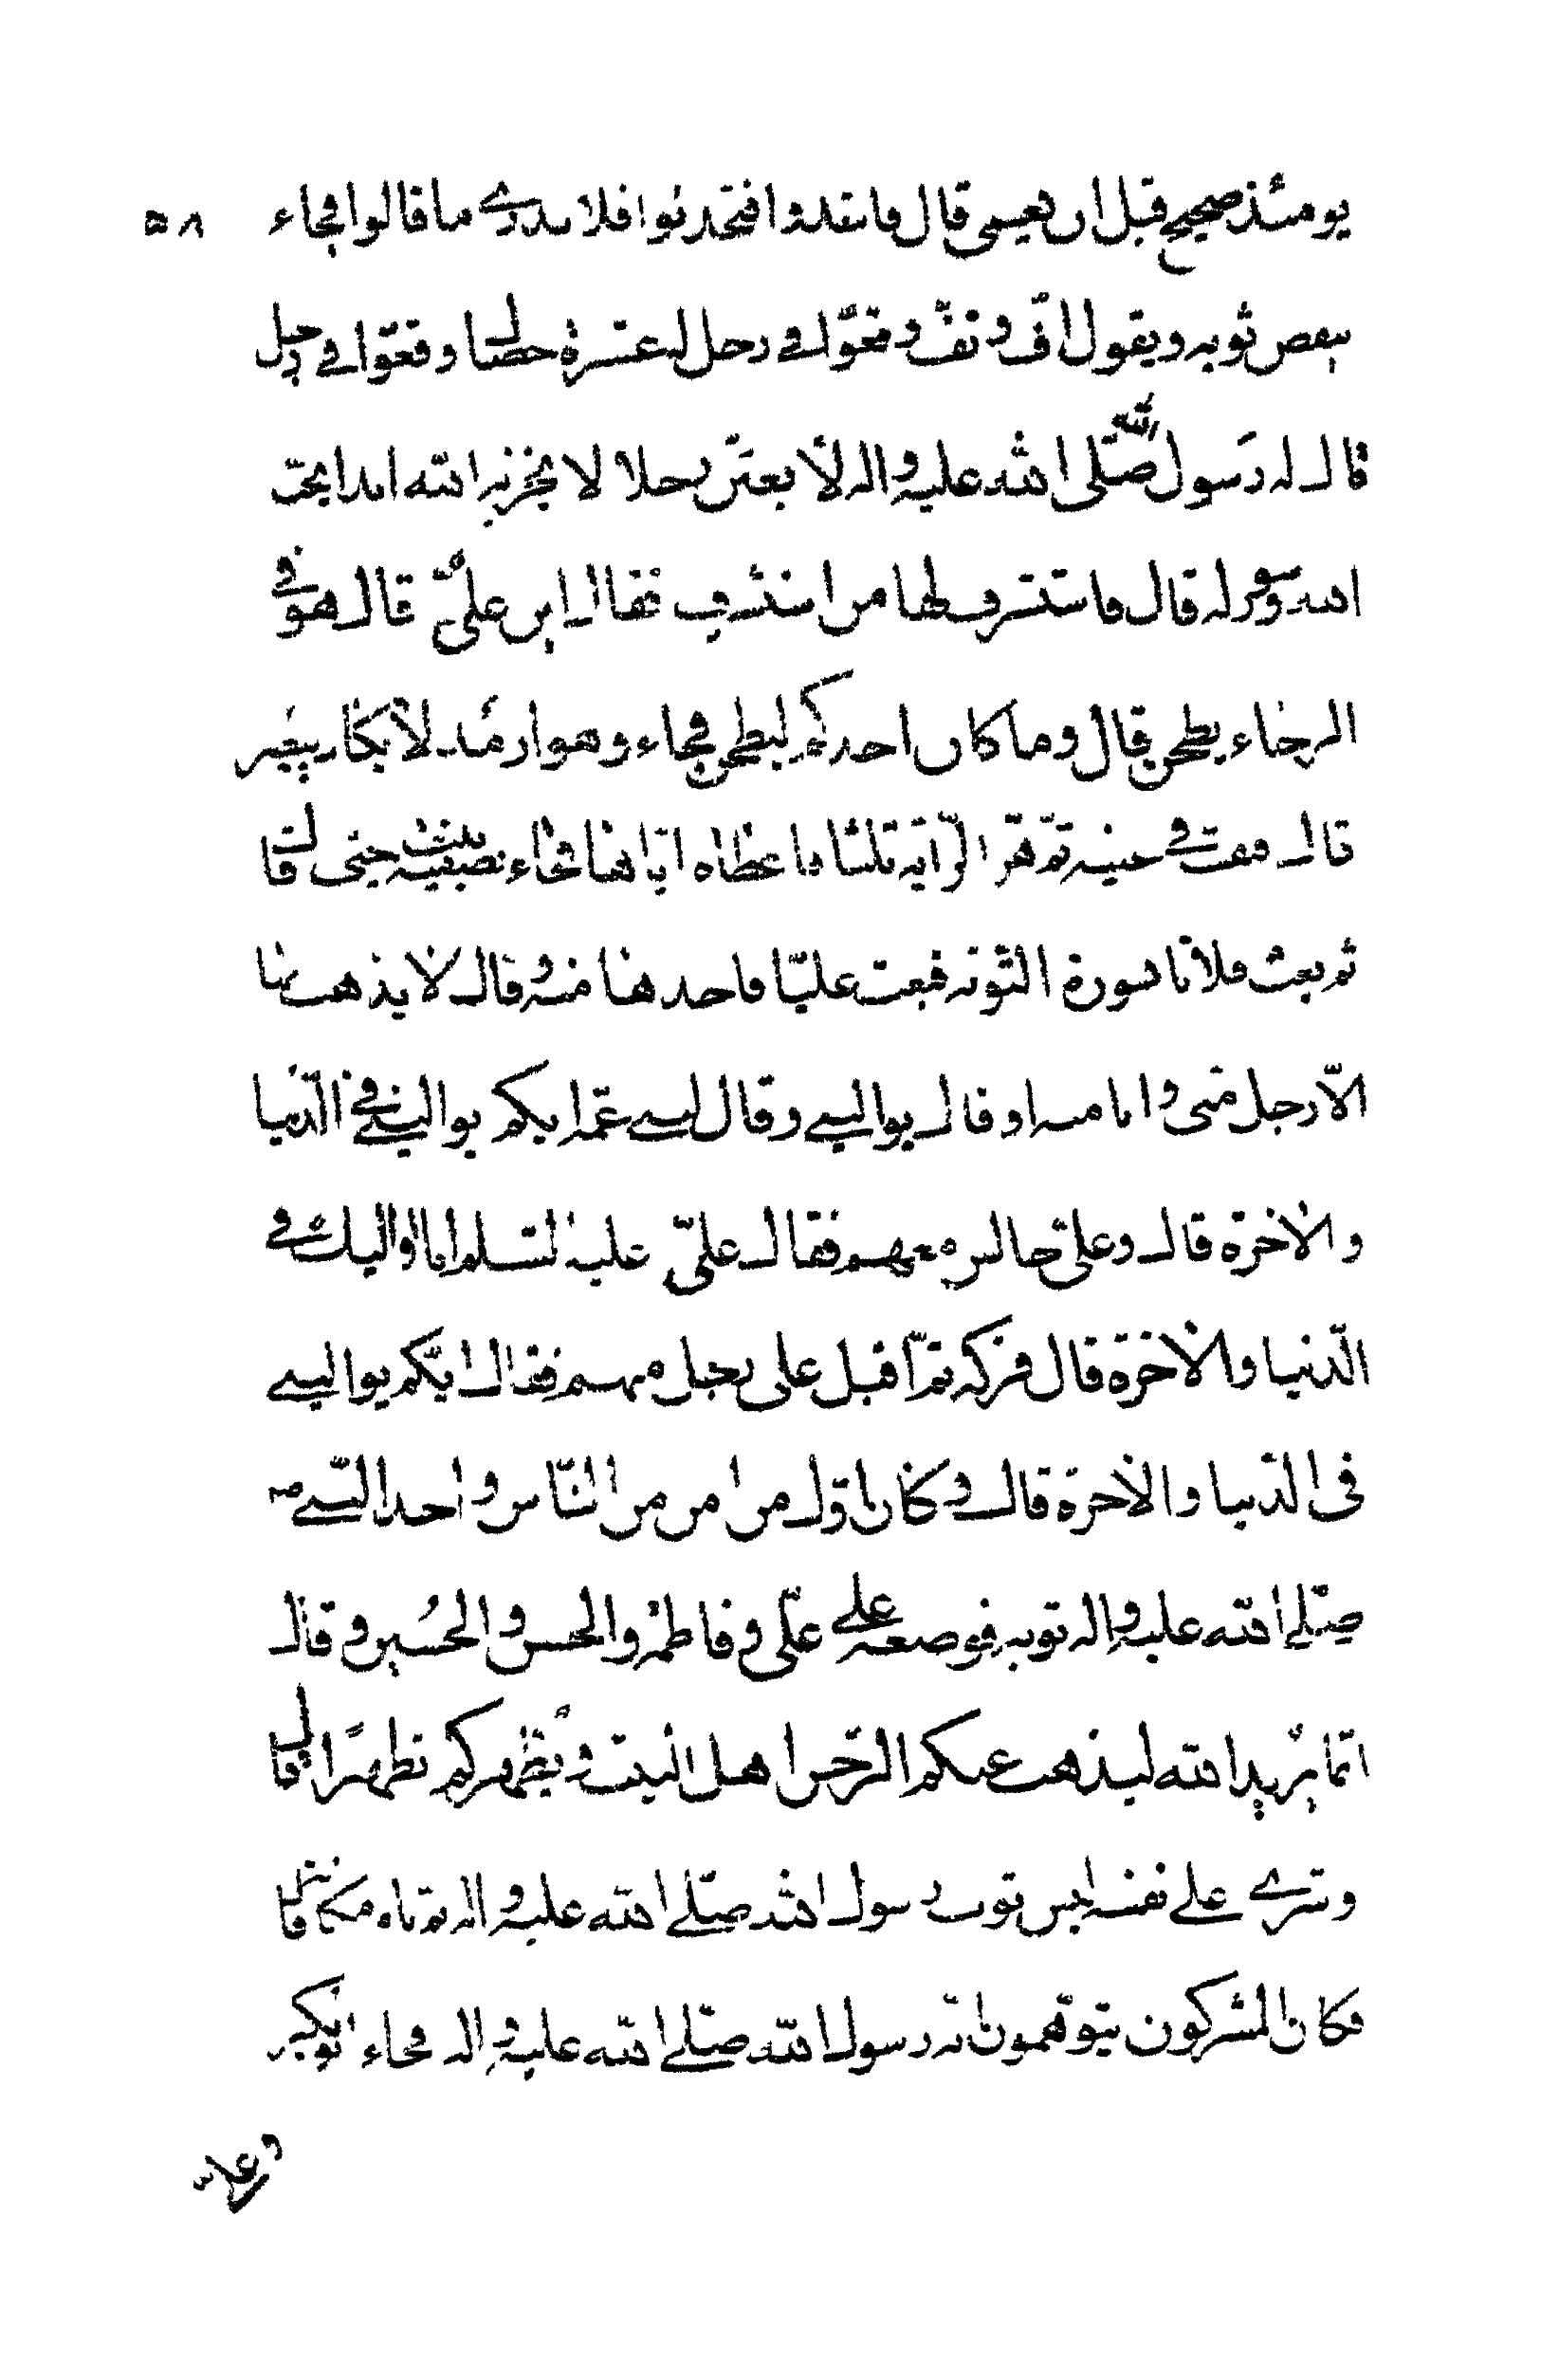 ٥٨
يومئذ صحيح قبل ان يعمى قال فانتدوا فتحدثوا فلا ندرى ما قالوا فجاء
ينفض ثوبه ويقول افّ وتفّ وقعوا في رجل له عشرة خصال وقعوا في رجل
قال له رسول الله صلى الله عليه واله لأبعثن رجلا لا يخزيه الله ابدا يحب
الله ورسوله قال فاستشرف لها من استشرف فقال اين عليّ قال هو في
الرحاء يطحن قال وما كان احدكم ليطحن فجاء وهو ارمد لا يكاد يبصر
قال فنفث في عينيه ثم هزّ الراية ثلثا فاعطاه اياها فجاء بصفية بنت حيى قال
ثم بعث فلانا بسورة التوبة فبعث عليّا فاخذها منه وقال لا يذهب بها
الّا رجل منى وانا منه او قال يوالينى وقال لبنى عمه ايكم يوالينى في الدنيا
والاخرة قال وعلىّ جالس معهم فقال علىّ عليه السلم انا اواليك فى
الدنيا والاخرة قال فتركه ثم اقبل على رجل منهم فقال ايكم يوالينى
فى الدنيا والاخرة قال وكان اول من امن من الناس واخذ النبى
صلى الله عليه واله ثوبه فوضعه على علّى وفاطمة والحسن والحسين وقال
انّما يريد الله ليذهب عنكم الرجس اهل البيت ويُطهركم تطهيرًا قال
وشرى على نفسه لبس ثوب رسول الله صلى الله عليه واله ثم نام مكانه قال
فكان المشركون يتوهمون انه رسول الله صلى الله عليه واله فجاء ابو بكر
وعلىّ